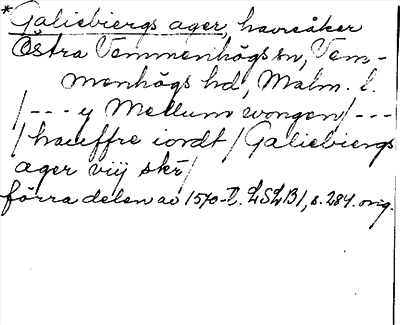 *Galiebiergs ager, havreåker
Östra Vemmenhögs sn, Vem-
menhögs hd, Malm. l.
/--- y Mellum wongen/---
/hauffre iordt/Galiebiergs
ager viij skr/
förra delen av 1570-t. LSLB1, s. 284. orig.